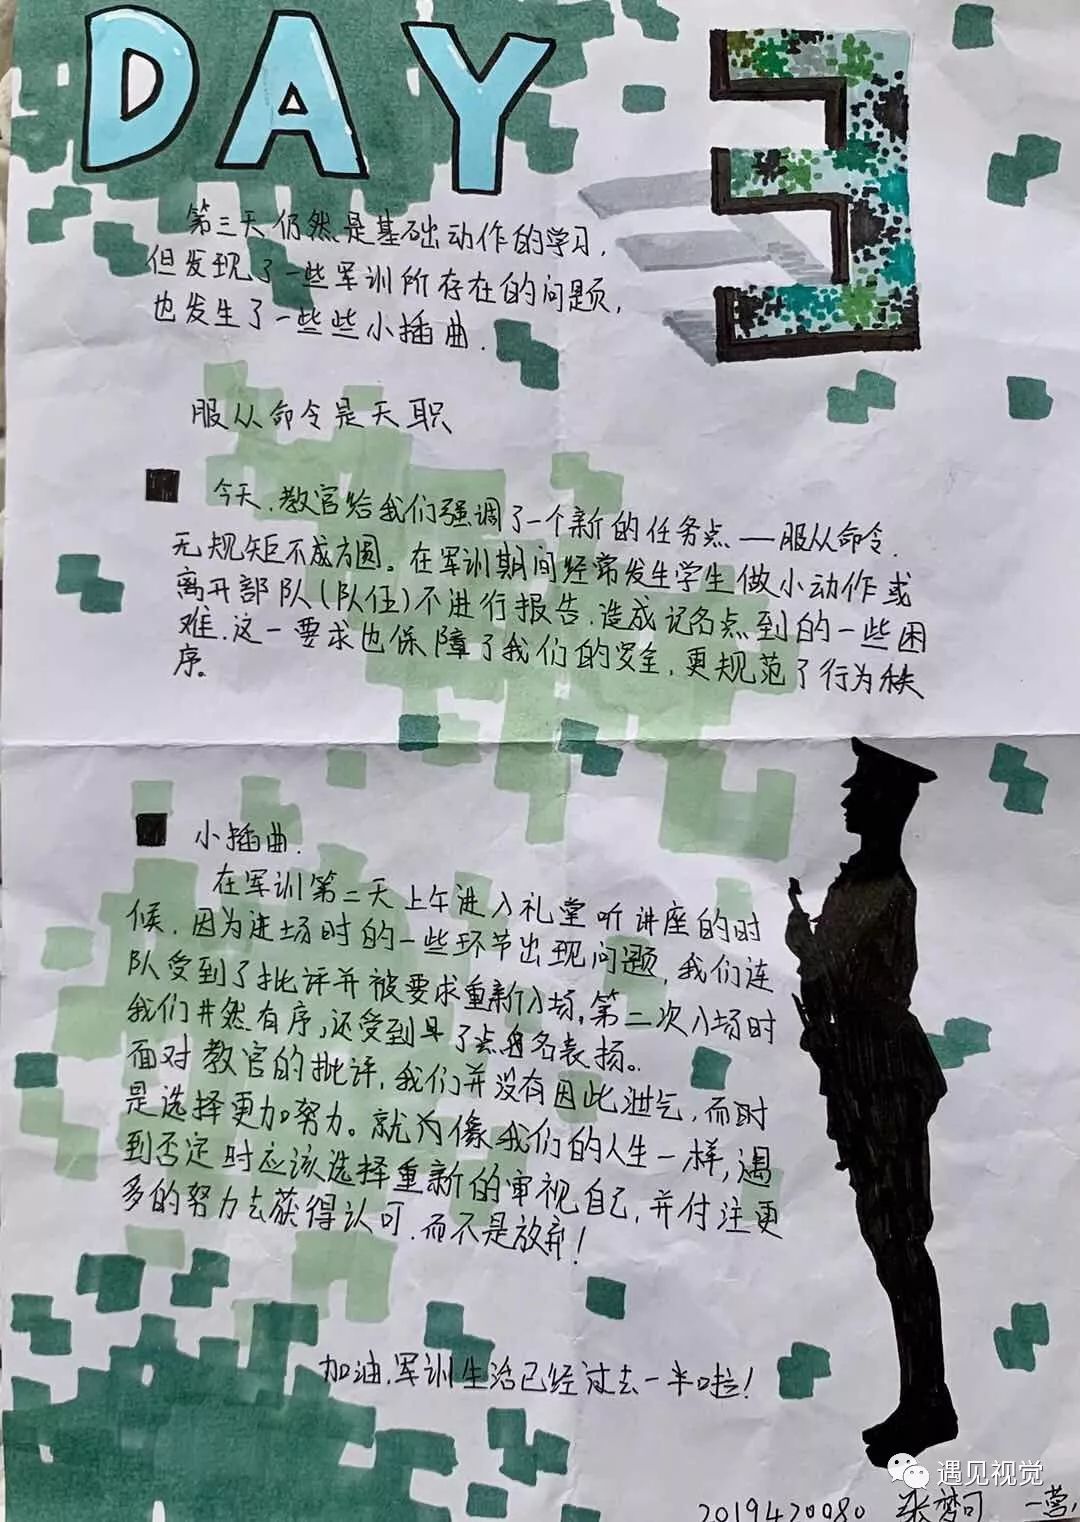 DAY 3
第三天仍然是基础动作的学习，
但发现了一些军训所存在的问题，
也发生了一些些小插曲.
服从命令是天职
今天.教官给我们强调了一个新的任务点—服从命令.
无规矩不成方圆。在军训期间经常发生学生做小动作或
离开部队(队伍)不进行报告.造成记名点到的一些困
难.这一要求也保障了我们的安全,更规范了行为秩
序。
小插曲.
在军训第二天上午进入礼堂听讲座的时
候.因为进场时的一些环节出现问题，我们连
队受到了批评并被要求重新入场。第二次入场时
我们井然有序,还受到了点名表扬。
面对教官的批评,我们并没有因此泄气,而时
是选择更加努力。就为像我们的人生一样,遇
到否定时应该选择重新的审视自己,并付注更
多的努力去获得认可.而不是放弃!
加油.军训生活已经过去一半啦!
2019420080 张梦可 一营.
遇见视觉